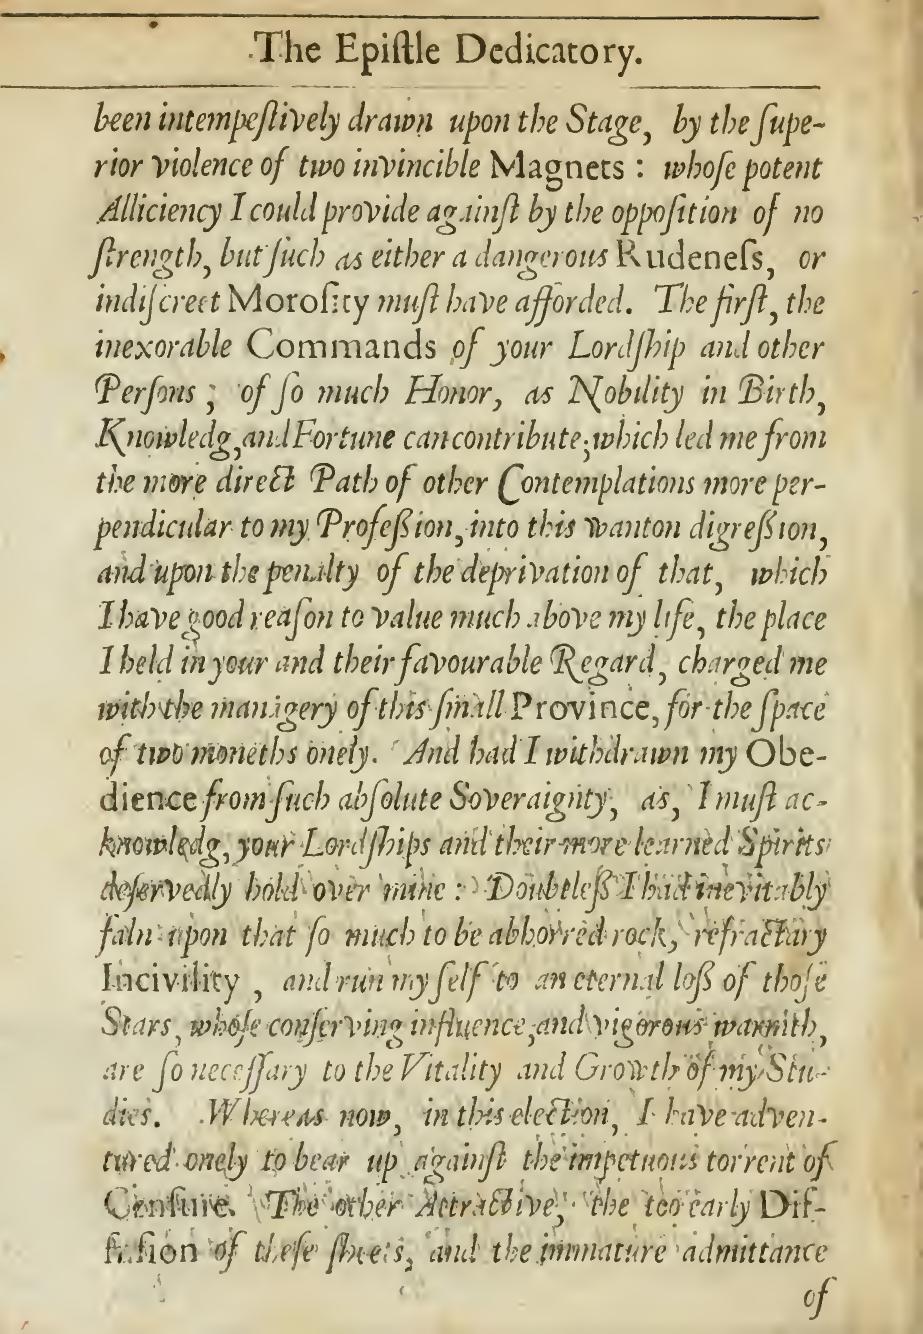 The Epiſtle Dedicatory.
been intempeſtively drawn upon the Stage, by the ſupe-
rior violence of two invincible Magnets : whoſe potent
Alliciency I could provide againſt by the oppoſition of no
ſtrength, but ſuch as either a dangerous Rudeneſs, or
indiſcreet Moroſity muſt have afforded. The firſt, the
inexorable Commands of your Lordſhip and other
Perſons ; of ſo much Honor, as Nobility in Birth,
Knowledg, and Fortune can contribute; which led me from
the more direct Path of other Contemplations more per-
pendicular to my Profeſsion, into this wanton digreſsion,
and upon the penalty of the deprivation of that, which
I have good reaſon to value much above my life, the place
I held in your and their favourable Regard, charged me
with the managery of this ſmall Province, for the ſpace
of two moneths onely. And had I withdrawn my Obe-
dience from ſuch abſolute Soveraignty, as, I muſt ac-
knowledg, your Lordſhips and their more learned Spirits
deſervedly hold over mine : Doubtleſs I had inevitably
faln upon that ſo much to be abhorred rock, refractary
Incivility , and run my ſelf to an eternal loſs of thoſe
Stars, whoſe conſerving influence, and vigorous warmth,
are ſo neceſſary to the Vitality and Growth of my Stu-
dies. Whereas now, in this election, I have adven-
tured onely to bear up againſt the impetuous torrent of
Cenſure. The other Attractive, the too early Diſ-
fuſion of theſe ſheets, and the immature admittance
of